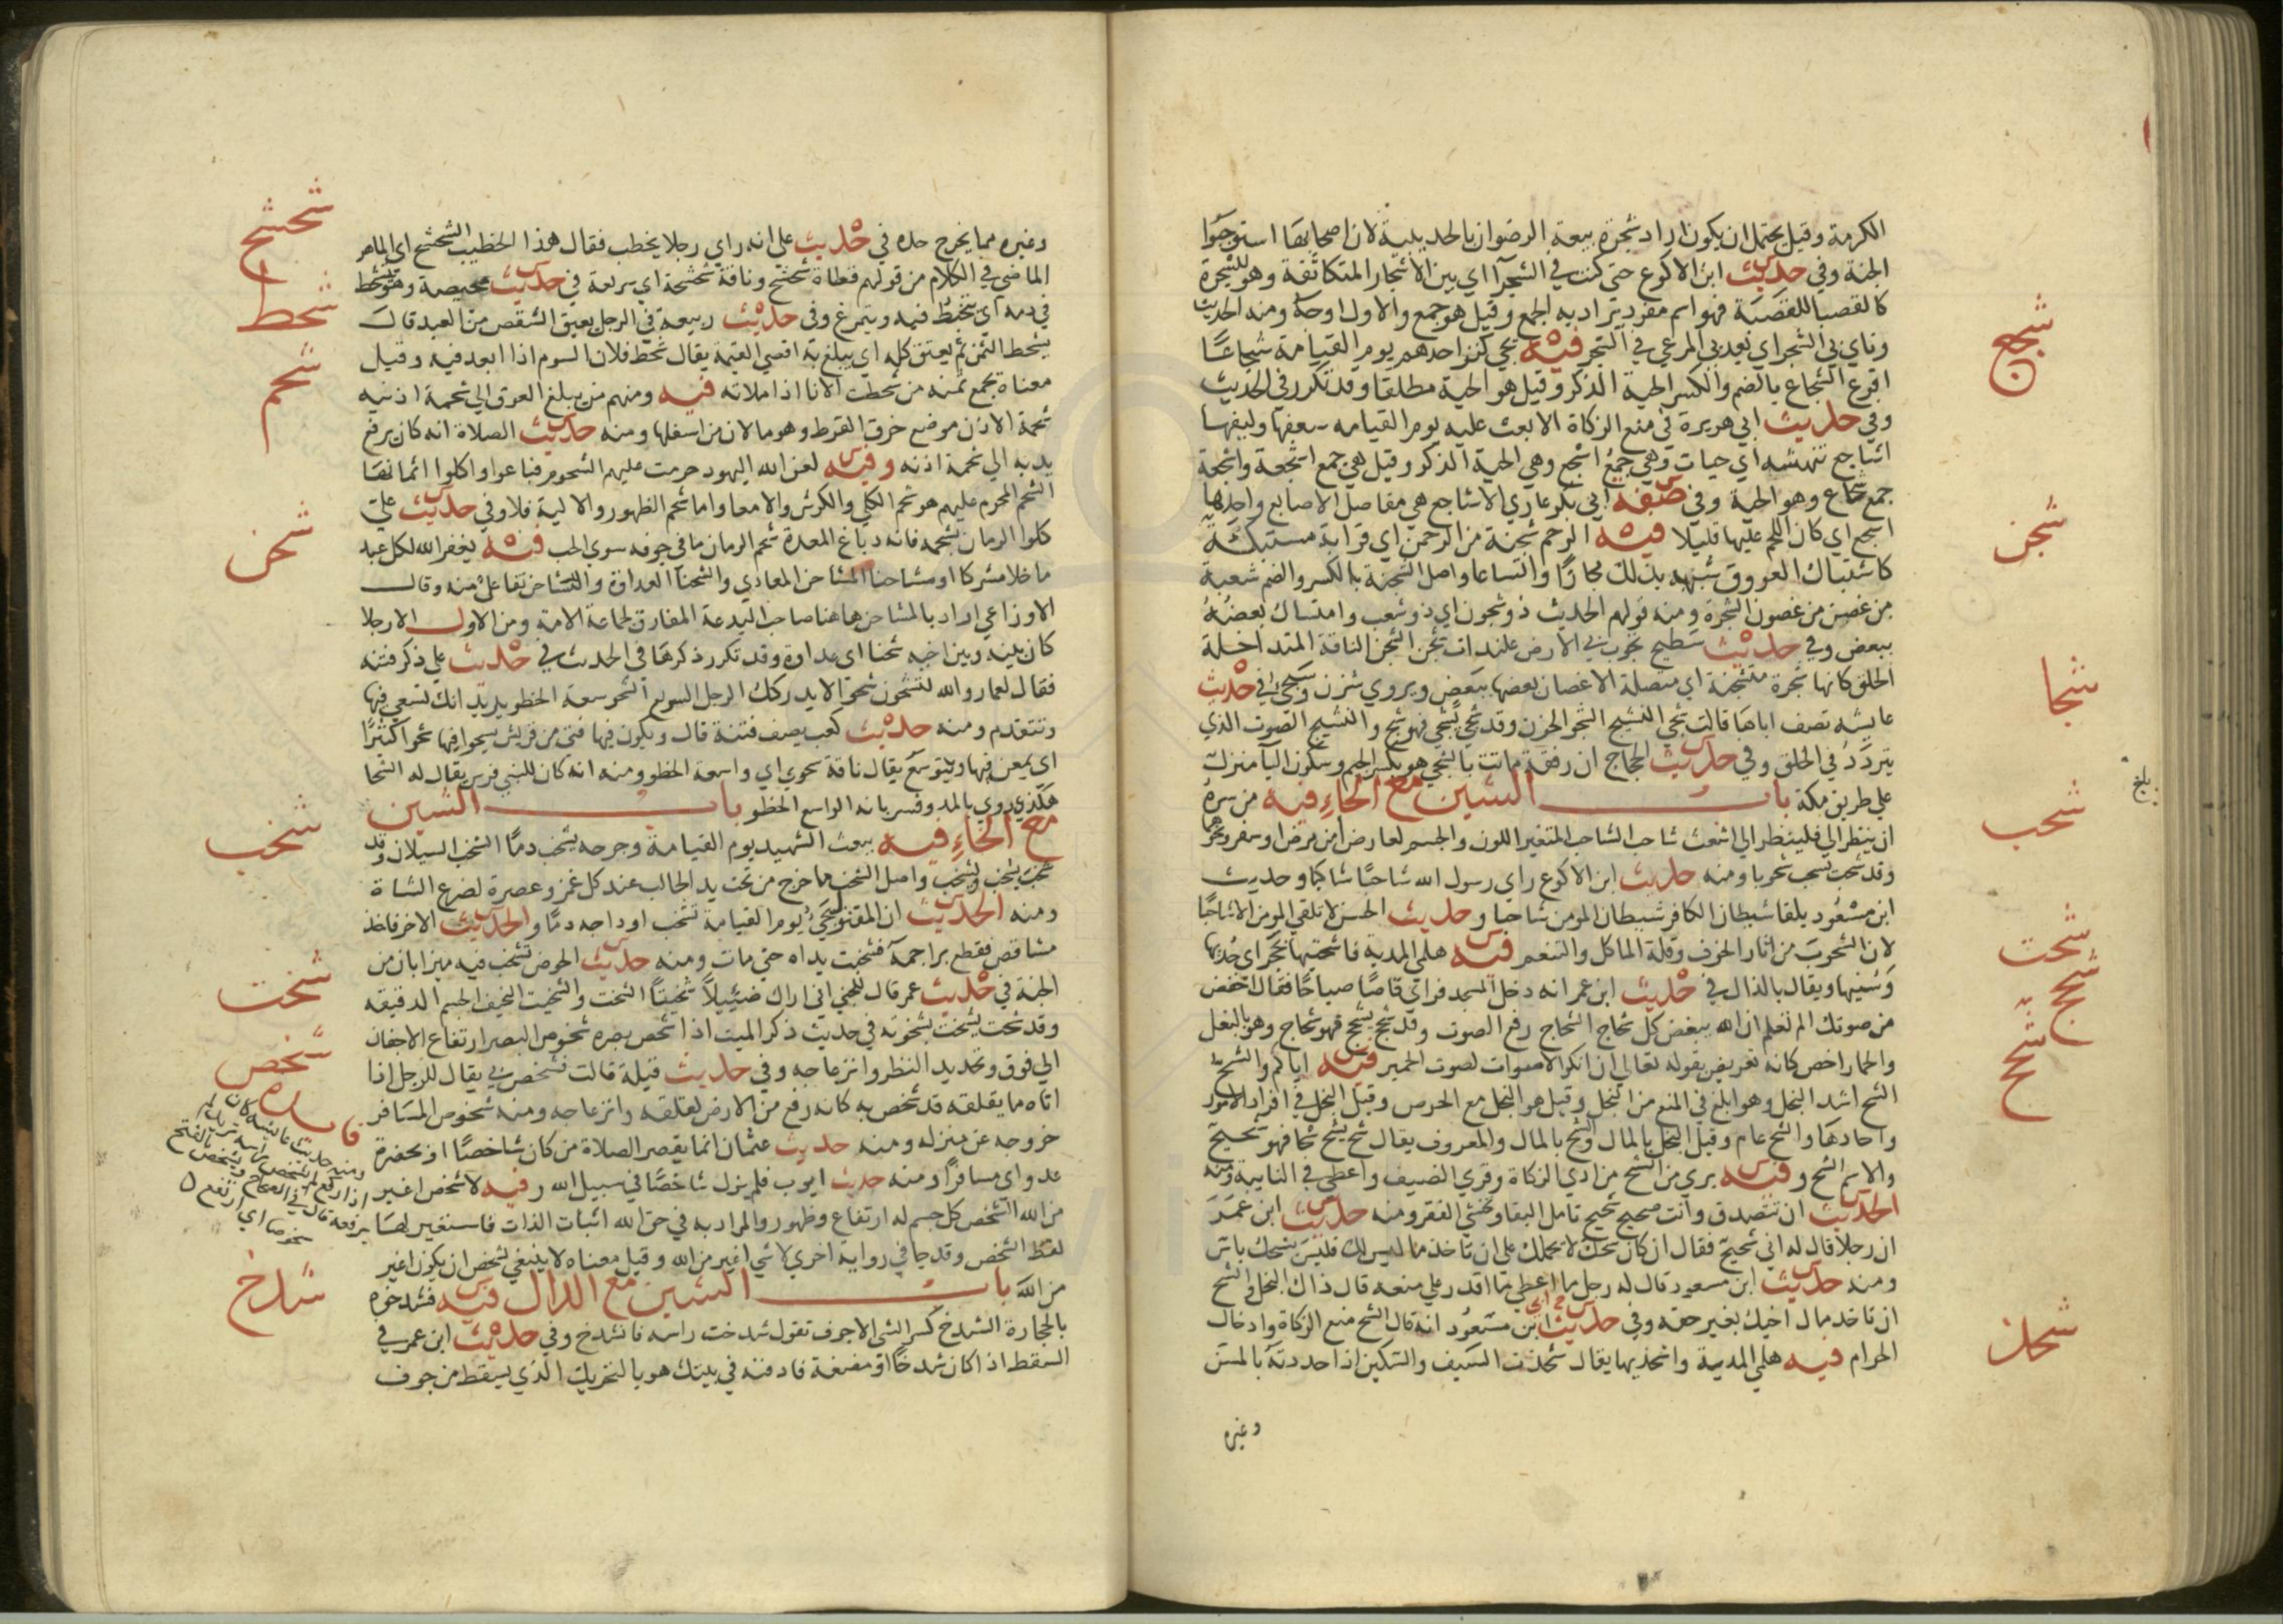 الكرمة وقيل يحتمل ان يكون اراد شجرة بيعة الرضوان بالحديبية لان اصحابها استوجبوا
الجنة وفي حديث ابن الاكوع حتى كنت في الشجرآ اي بين الاشجار المتكاثفة وهو للشجرة
كالقصبا للقصبة فهو اسم مفرد يراد به الجمع وقيل هو جمع والاول اوجه ومنه الحديث
وناي بي الشجر اي بعد بي المرعي في الشجر فيه يجي كنز احدهم يوم القيامة شجاعا
اقرع الشجاع بالضم والكسر الحية الذكر وقيل هو الحية مطلقا وقد تكرر في الحديث
وفي حديث ابي هريرة في منع الزكاة الا بعث عليه يوم القيامه سعفها وليفها
اشاجع تنهشه اي حيات وهي جمع اشجع وهي الحية الذكر وقيل هي جمع اشجعة واشجعة
جمع شجاع وهو الحية وفي صفة ابي بكر عاري الاشاجع هي مفاصل الاصابع واحدها
اشجع اي كان اللحم عليها قليلا فيه الرحم شجنة من الرحمن اي قرابة مشتبكة
كاشتباك العروق شبهه بذلك مجازا واتساعا واصل الشجنة بالكسر والضم شعبة
من غصن من غصون الشجرة ومنه قولهم الحديث ذو شجون اي ذو شعب وامتساك بعضه
ببعض وفي حديث سطيح تجوب بي الارض علنداة شجن الشجن الناقة المتداخلة
الخلق كانها شجرة متشجنة اي متصلة الاغصان بعضها ببعض ويروي شزن وسيجئ في حديث
عايشه تصف اباها قالت شجي النشيج الشجو الحزن وقد شجي يشجي فهو شج والنشيج الصوت الذي
يتردد في الحلق وفي حديث الحجاج ان رفقة ماتت بالشجي هو بكسر الجيم وسكون اليآ منزلة
علي طريق مكة باب الشين مع الحاء فيه من سره
ان ينظر الي فلينظر الي اشعث شاحب الشاحب المتغير اللون والجسم لعارض من مرض او سفر ونحوهما
وقد شحب يشحب شحوبا ومنه حديث ابن الاكوع راي رسول الله شاحبا شاكيا وحديث
ابن مسعود يلقا شيطان الكافر شيطان المومن شاحبا وحديث الحسن لا تلقي المومن الا شاحبا
لان الشحوب من اثار الخوف وقلة الماكل والتنعم فيه هلمي المدية فاشحثيها بحجر اي حديها
وسنيها ويقال بالذال في حديث ابن عمر انه دخل المسجد فراي قاصا صياحا فقال اخفض
من صوتك الم تعلم ان الله يبغض كل شحاج الشحاج رفع الصوت وقد شحج يشحج فهو شحاج وهو بالبغل
والحمار اخص كانه تعريض بقوله تعالي ان انكر الاصوات لصوت الحمير فيه اياكم والشح
الشح اشد البخل وهو ابلغ في المنع من البخل وقيل هو البخل مع الحرص وقيل البخل في افراد الامور
واحادها والشح عام وقيل البخل بالمال والشح بالمال والمعروف يقال شح يشح شحا فهو شحيح
والاسم الشح وفيه بري من الشح من ادي الزكاة وقري الضيف واعطي في النايبة ومنه
الحديث ان تتصدق وانت صحيح شحيح تامل البقا وتخشي الفقر ومنه حديث ابن عمر
ان رجلا قال له اني شحيح فقال ان كان شحك لا يحملك على ان تاخذ ما ليس لك فليس بشحك باس
ومنه حديث ابن مسعود قال له رجل ما اعطي ما اقدر علي منعه قال ذاك البخل والشح
ان تاخذ مال اخيك بغير حقه وفي حديث ابن مسعود انه قال الشح منع الزكاة وادخال
الحرام فيه هلمي المدية واشحذيها يقال شحذت السيف والسكين اذا حددته بالمسن
وغيره
شجع
شجن
شجا
بلغ
شحب
شحث
شحج
شحح
شحذ
وغيره مما يخرج حده في حديث علي انه راي رجلا يخطب فقال هذا الخطيب الشحشح اي الماهر
الماضي في الكلام من قولهم قطاة شحشح وناقة شحشحة اي سريعة في حديث محيصة وهو يتشحط
في دمه اي يتخبط فيه ويتمرغ وفي حديث ربيعة في الرجل يعتق الشقص من العبد قال
يشحط الثمن ثم يعتق كله اي يبلغ به اقصي القيمة يقال شحط فلان السوم اذا ابعد فيه وقيل
معناه يجمع ثمنه من شحطت الانا اذا ملاته فيه ومنهم من يبلغ العرق الي شحمة اذنيه
شحمة الاذن موضع خرق القرط وهو ما لان من اسفلها ومنه حديث الصلاة انه كان يرفع
يديه الي شحمة اذنه وفيه لعن الله اليهود حرمت عليهم الشحوم فباعوا واكلوا اثمانها
الشحم المحرم عليهم هو شحم الكلي والكرش والامعا واما شحم الظهور والالية فلا وفي حديث علي
كلوا الرمان بشحمه فانه دباغ المعدة شحم الرمان ما في جوفه سوي الحب فيه يغفر الله لكل عبد
ما خلا مشركا او مشاحنا المشاحن المعادي والشحنآ العداوة والتشاحن تفاعل منه وقال
الاوزاعي اراد بالمشاحن هاهنا صاحب البدعة المفارق لجماعة الامة ومن الاول الا رجلا
كان بينه وبين اخيه شحنا اي عداوة وقد تكرر ذكرها في الحديث في حديث علي ذكر فتنه
فقال لعمار والله لتشحون شحوا لا يدركك الرجل السريع الشحو سعة الخطو يريد انك تسعي فيها
وتتقدم ومنه حديث كعب يصف فتنة قال ويكون فيها فتي من قريش يشحو فيها شحوا كثيرا
اي يمعن فيها ويتوسع يقال ناقة شحوي اي واسعة الخطو ومنه انه كان للنبي فرس يقال له الشحا
هكذي روي بالمد وفسر بانه الواسع الخطو باب الشين
مع الخاء فيه يبعث الشهيد يوم القيامة وجرحه يشخب دما الشخب السيلان وقد
شخب يشخب ويشخب واصل الشخب ما خرج من تحت يد الحالب عند كل غمز وعصرة لضرع الشاة
ومنه الحديث ان المقتول يجئ يوم القيامة تشخب اوداجه دما والحديث الاخر فاخذ
مشاقص فقطع براجمه فشخبت يداه حتي مات ومنه حديث الحوض تشخب فيه ميزابان من
الجنة في حديث عمر قال للجني اني اراك ضئيلا شخيتا الشخت والشخيت النحيف الجسم الدقيقه
وقد شخت يشخت شخوته في حديث ذكر الميت اذا شخص بصره شخوص البصر ارتفاع الاجفان
الي فوق وتحديد النظر وانزعاجه وفي حديث قيلة قالت فشخص بي يقال للرجل اذا
اتاه ما يقلقه قد شخص به كانه رفع من الارض لقلقه وانزعاجه ومنه شخوص المسافر
خروجه عن منزله ومنه حديث عثمان انما يقصر الصلاة من كان شاخصا او بحضرة
عدو اي مسافرا ومنه حديث ابوب فلم يزل شاخصا في سبيل الله وفيه لا شخص اغير
من الله الشخص كل جسم له ارتفاع وظهور والمراد به في حق الله اثبات الذات فاستغير لها
لفظ الشخص وقد جا في رواية اخري لا شي اغير من الله وقيل معناه لا ينبغي لشخص ان يكون اغير
من الله باب الشين مع الدال فيه فشدخوه
بالحجارة الشدخ كسر الشي الاجوف تقول شدخت راسه فانشدخ وفي حديث ابن عمر في
السقط اذا كان شدخا او مضغة فادفنه في بيتك هو بالتحريك الذي يسقط من جوف
شحشح
شحط
شحم
شحن
شخب
شخت
شخص
ومنه حديث عايشه كان
اذا ركع لم يشخص راسه
شدخ